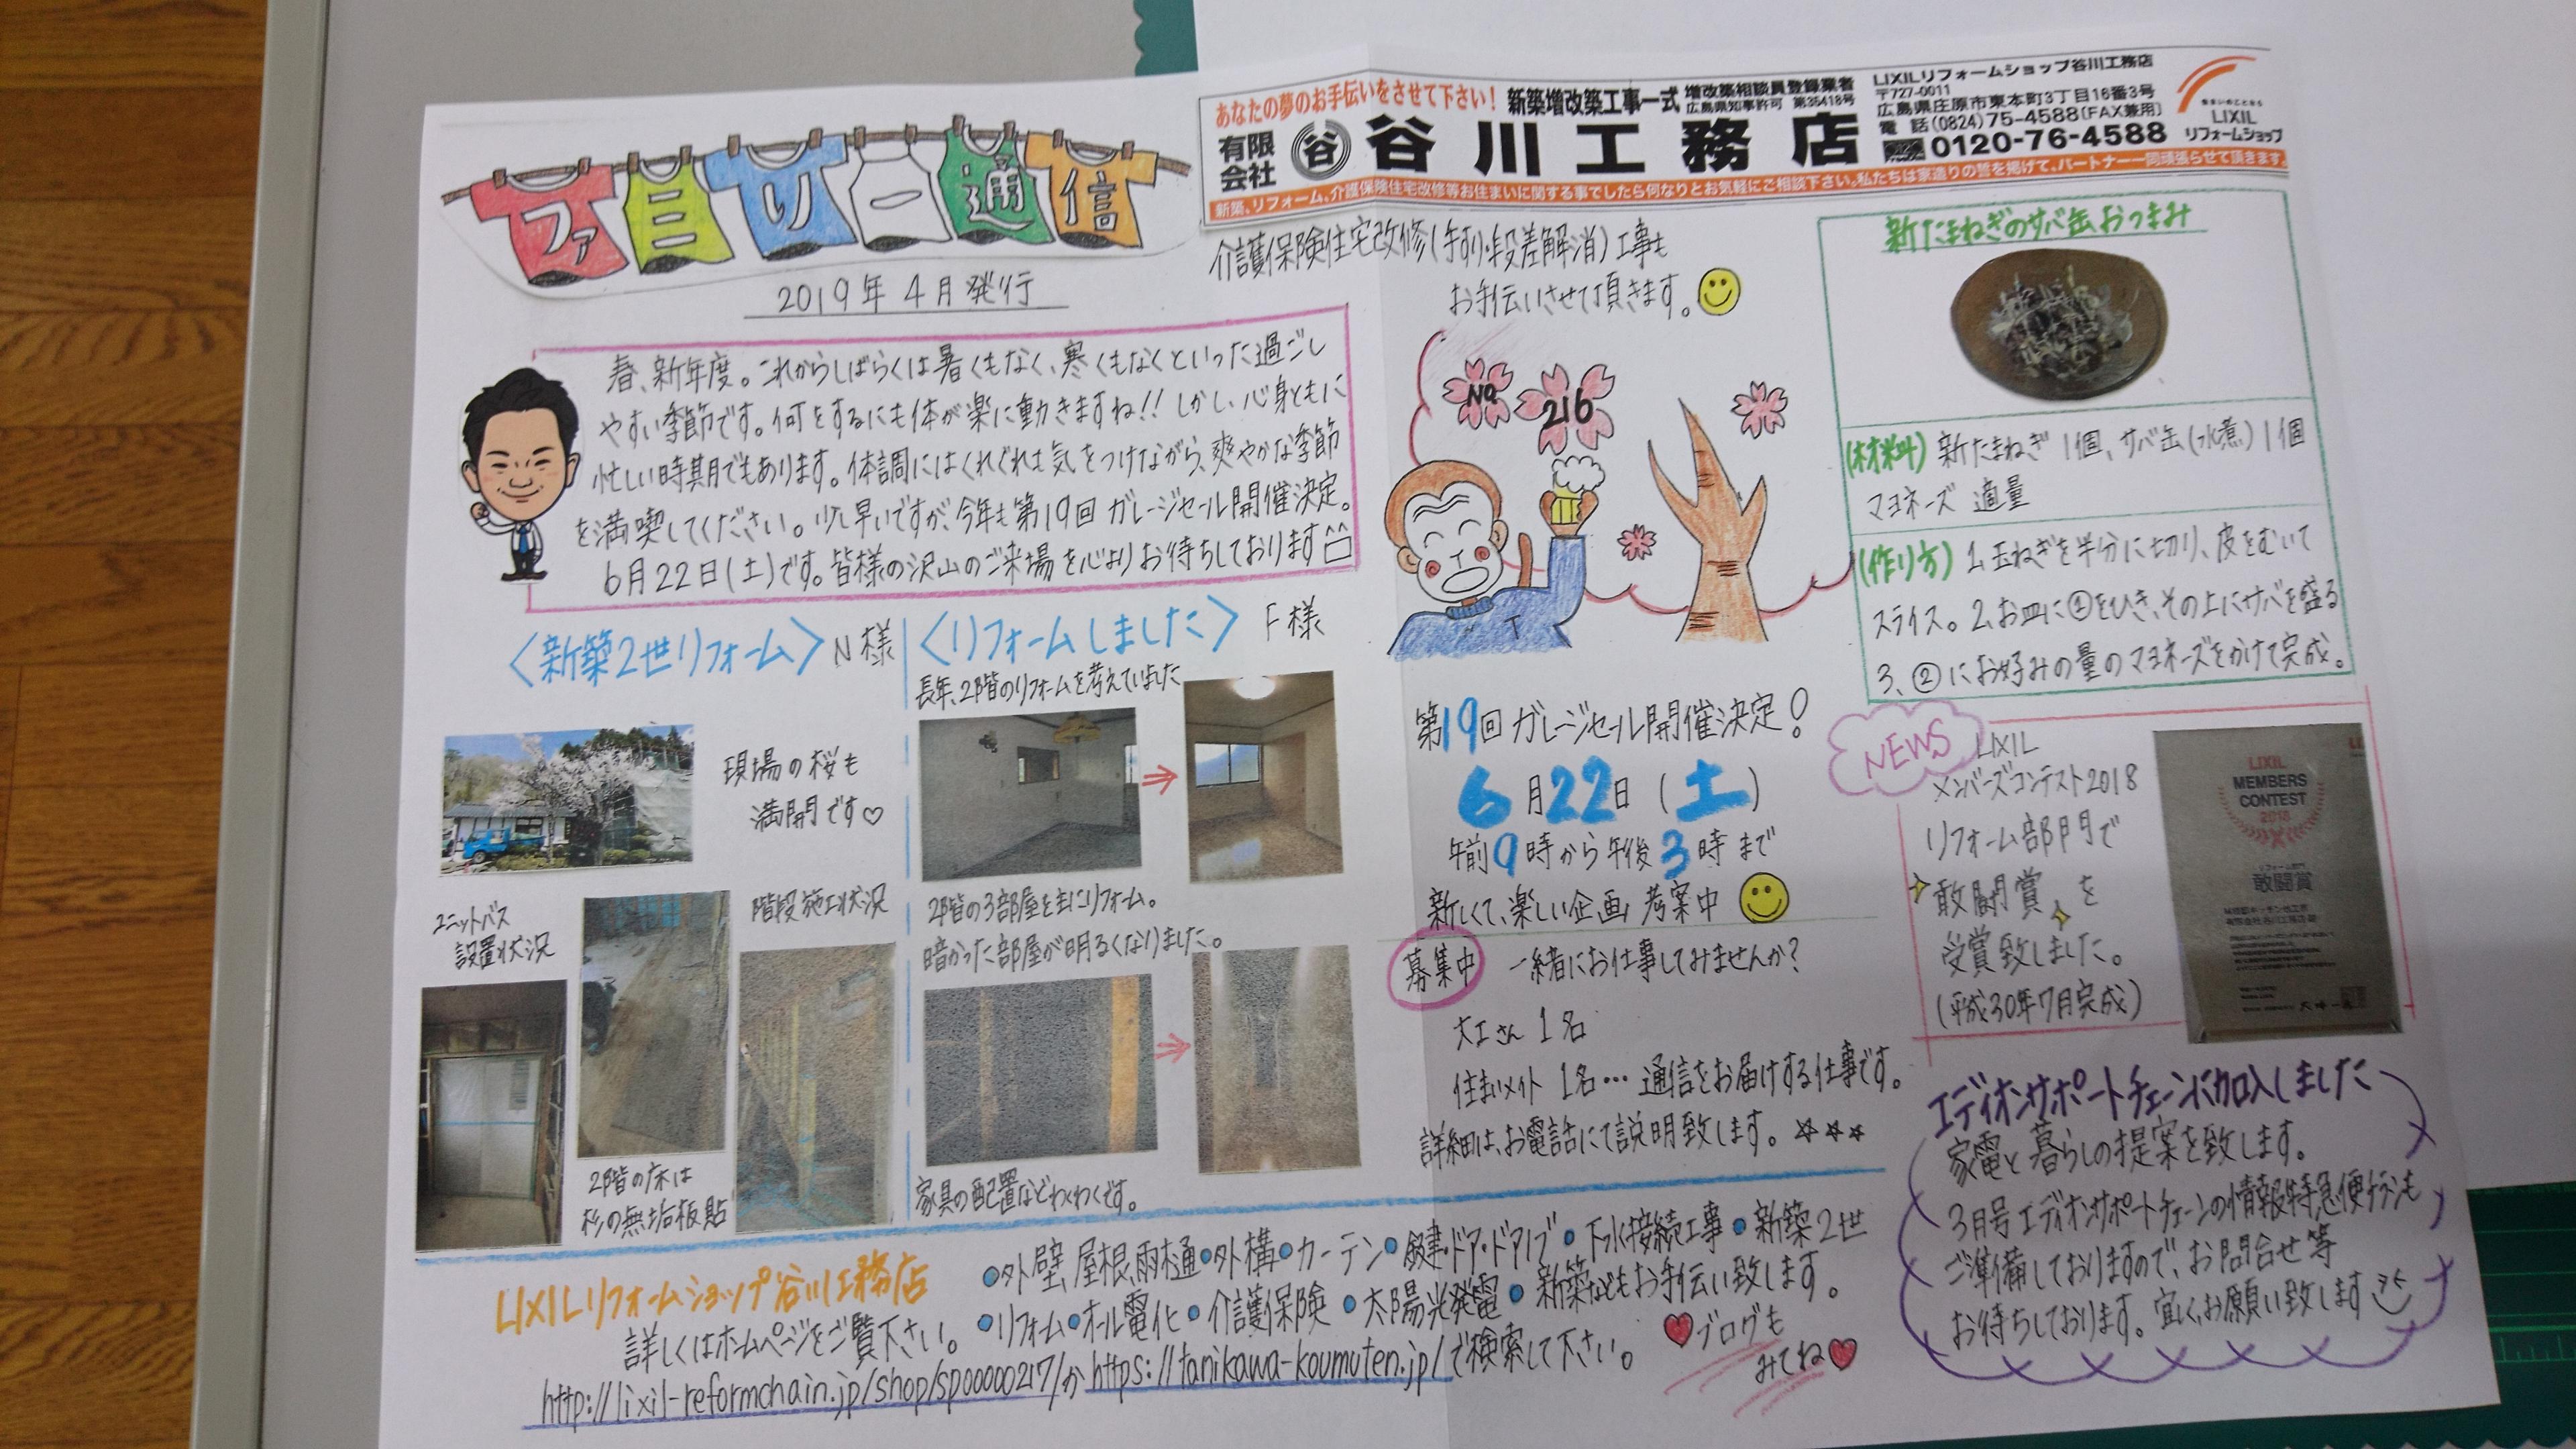 ファミリー通信
2019年 4月発行
あなたの夢のお手伝いをさせて下さい！ 新築増改築工事一式 増改築相談員登録業者
広島県知事許可 第35418号
有限会社 谷 谷川工務店
LIXILリフォームショップ谷川工務店
〒727-0011
広島県庄原市東本町3丁目16番3号
電話(0824)75-4588〔FAX兼用〕
0120-76-4588
LIXIL
リフォームショップ
新築、リフォーム、介護保険住宅改修等お住まいに関する事でしたら何なりとお気軽にご相談下さい。私たちは家造りの誓を掲げて、パートナー一同頑張らせて頂きます。
春、新年度。これからしばらくは暑くもなく、寒くもなくといった過ごし
やすい季節です。何をするにも体が楽に動きますね!! しかし、心身ともに
忙しい時期でもあります。体調にはくれぐれも気をつけながら、爽やかな季節
を満喫してください。少し早いですが、今年も第19回 ガレージセール開催決定。
6月22日(土)です。皆様の沢山のご来場を心よりお待ちしております
介護保険住宅改修(手すり・段差解消)工事も
お手伝いさせて頂きます。
No. 216
新たまねぎのサバ缶おつまみ
(材料) 新たまねぎ 1個、サバ缶(水煮) 1個
マヨネーズ 適量
(作り方) 1、玉ねぎを半分に切り、皮をむいて
スライス。2、お皿に①をひき、その上にサバを盛る
3、②にお好みの量のマヨネーズをかけて完成。
〈新築2世リフォーム〉N様
現場の桜も
満開です♡
ユニットバス
設置状況
階段施工状況
2階の床は
杉の無垢板貼
〈リフォームしました〉 F様
長年、2階のリフォームを考えていました
2階の3部屋を主にリフォーム。
暗かった部屋が明るくなりました。
家具の配置などわくわくです。
第19回 ガレージセール開催決定！
6月22日(土)
午前9時から午後3時まで
新しくて、楽しい企画 考案中
募集中 一緒にお仕事してみませんか？
大工さん 1名
住まいメイト 1名… 通信をお届けする仕事です。
詳細は、お電話にて説明致します。☆☆☆
NEWS LIXIL
メンバーズコンテスト2018
リフォーム部門で
敢闘賞 を
受賞致しました。
(平成30年7月完成)
LIXIL
MEMBERS
CONTEST
2018
リフォーム部門
敢闘賞
エディオンサポートチェーンに加入しました
家電と暮らしの提案を致します。
3月号エディオンサポートチェーンの情報特急便チラシも
ご準備しておりますので、お問合せ等
お待ちしております。宜しくお願い致します
LIXILリフォームショップ谷川工務店
●外壁、屋根、雨樋●外構●カーテン●鍵・ドア・ドアノブ●下水接続工事●新築2世
●リフォーム●オール電化●介護保険●太陽光発電●新築などもお手伝い致します。
詳しくはホームページをご覧下さい。
http://lixil-reformchain.jp/shop/sp00000217/か https://tanikawa-koumuten.jp/で検索して下さい。
ブログも
みてね